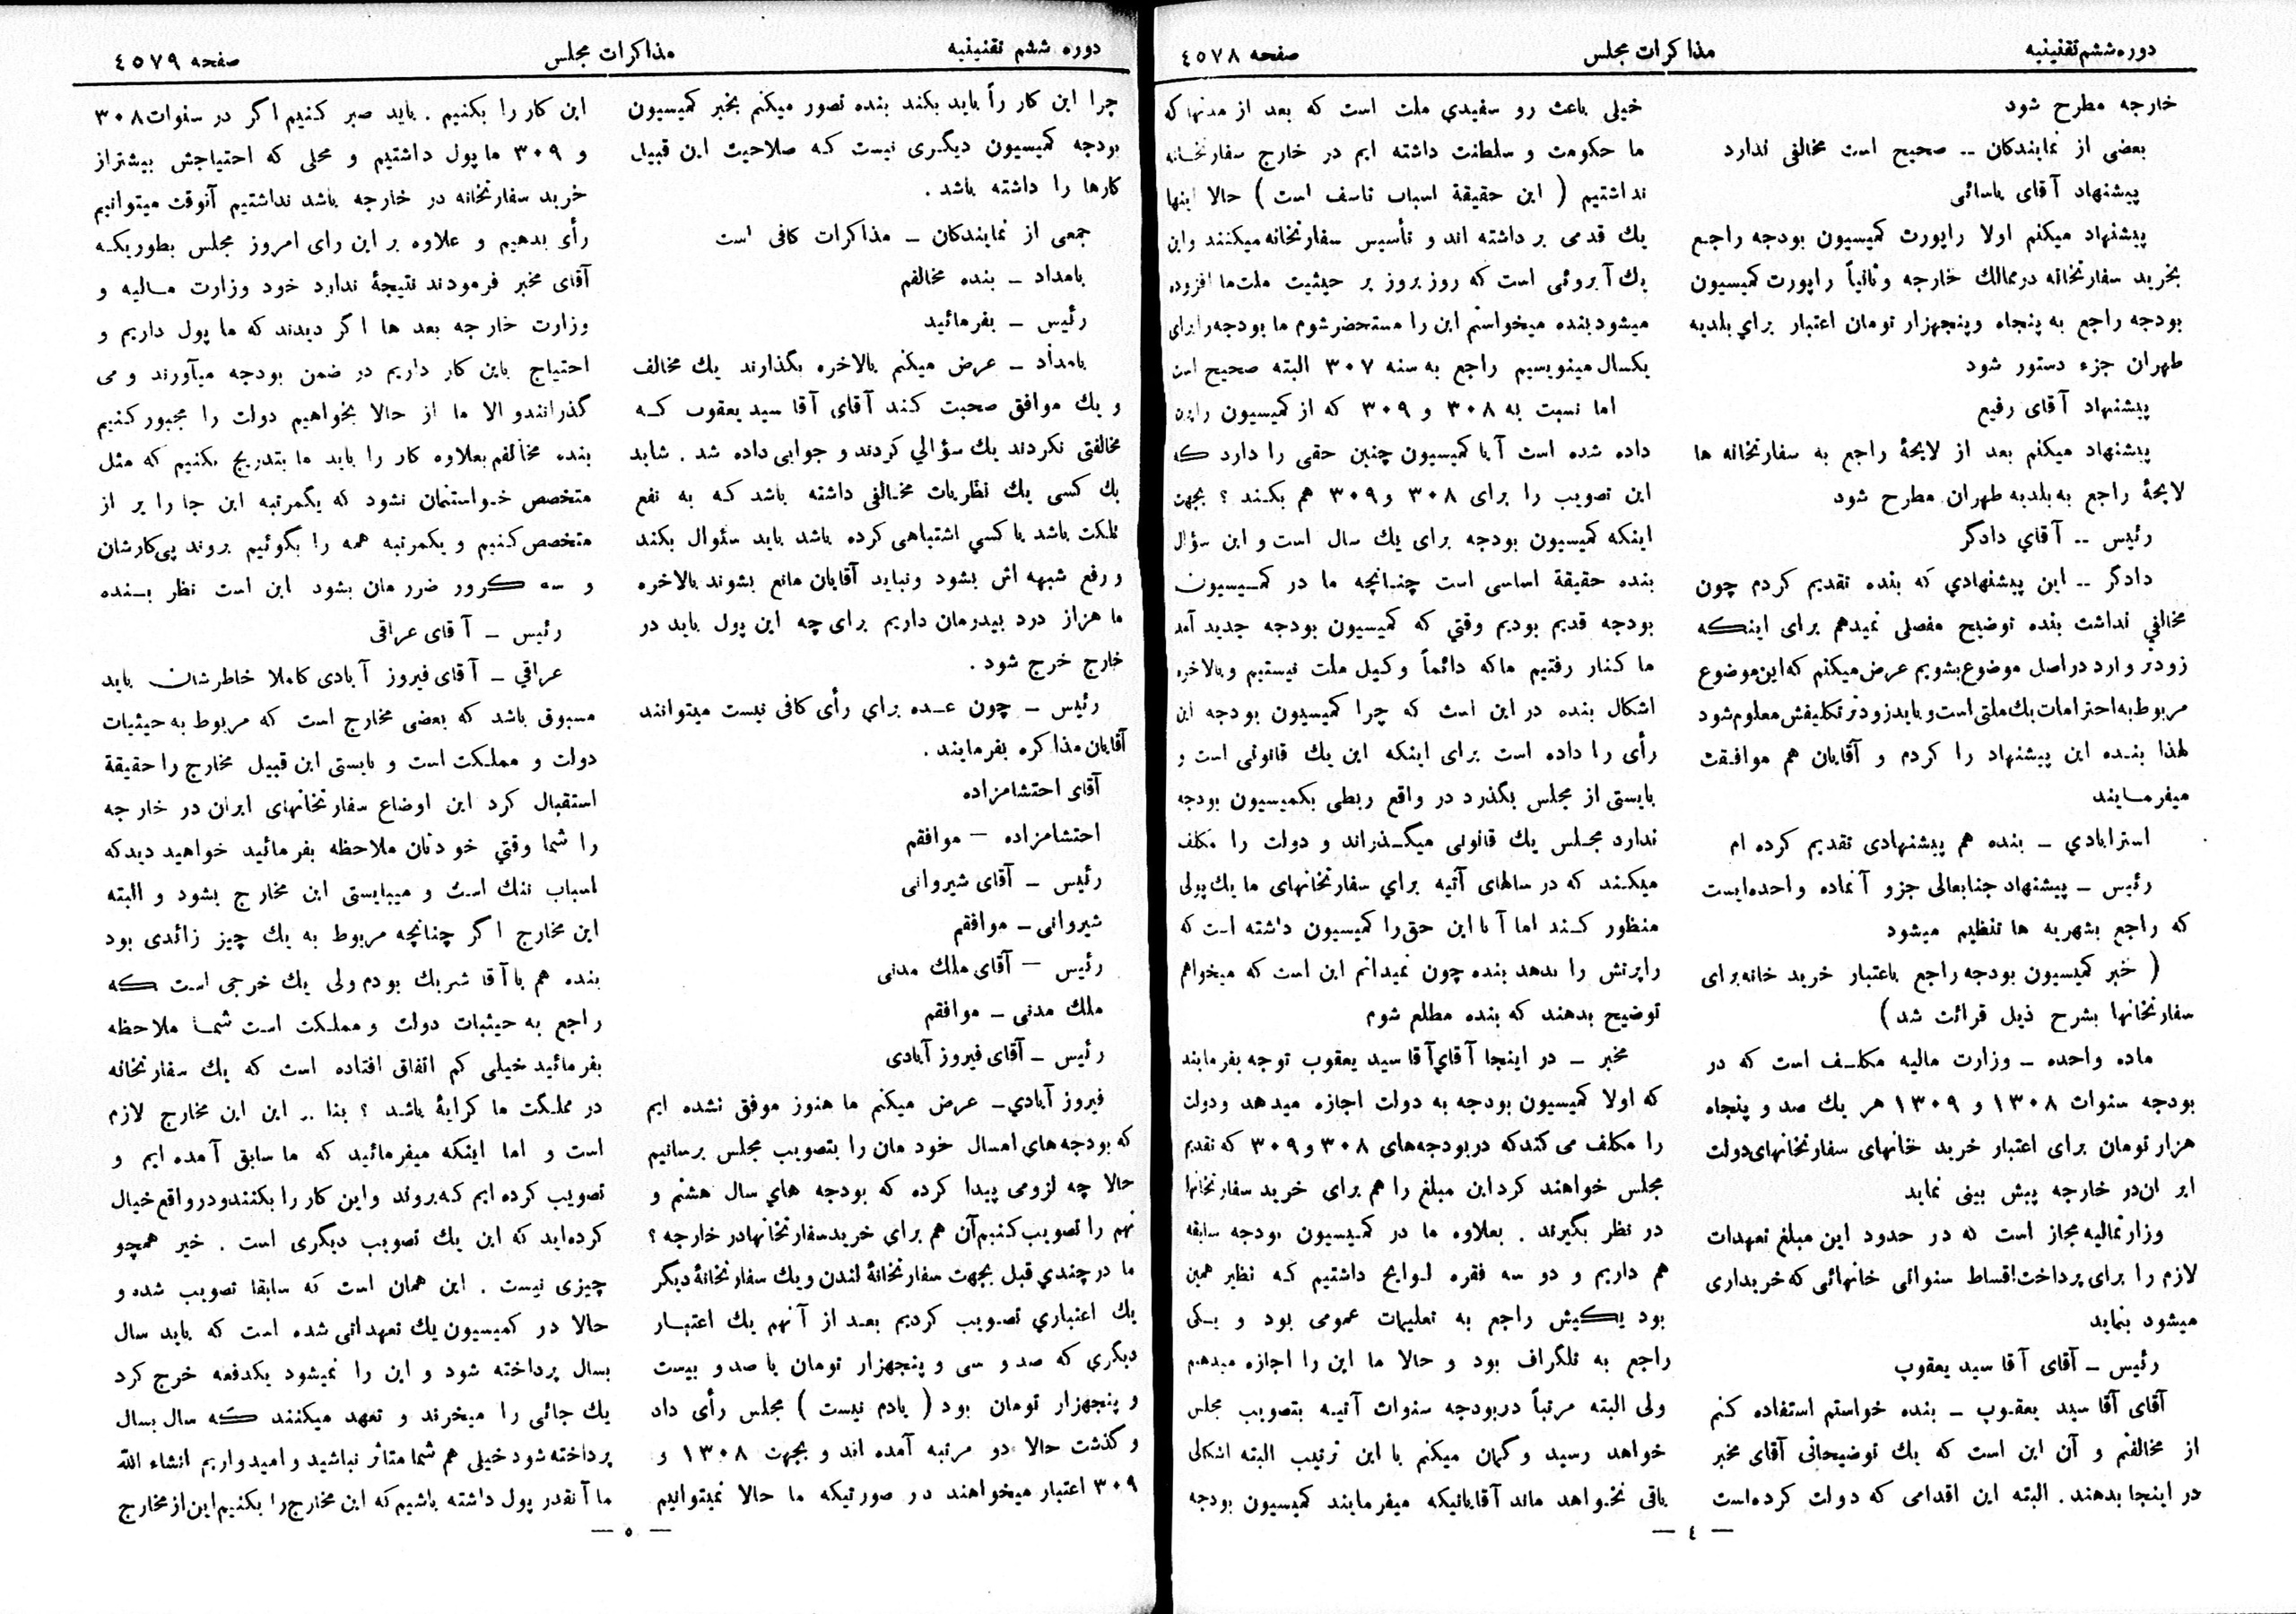 دوره ششم تقنینیه
مذاکرات مجلس
صفحه ٤٥٧٨
خارجه مطرح شود
بعضی از نمایندگان -- صحیح است مخالفی ندارد
پیشنهاد آقای یاسائی
پیشنهاد میکنم اولا راپورت کمیسیون بودجه راجع
بخرید سفارتخانه درممالك خارجه وثانیاً راپورت کمیسیون
بودجه راجع به پنجاه وپنجهزار تومان اعتبار براي بلدیه
طهران جزء دستور شود
پیشنهاد آقای رفیع
پیشنهاد میکنم بعد از لایحۀ راجع به سفارتخانه ها
لایحۀ راجع به بلدیه طهران مطرح شود
رئیس -- آقاي دادگر
دادگر -- این پیشنهادي که بنده تقدیم کردم چون
مخالفي نداشت بنده توضیح مفصلی نمیدهم برای اینکه
زودتر وارد در اصل موضوع بشویم عرض میکنم که این موضوع
مربوط به احترامات یك ملتی است و باید زودتر تکلیفش معلوم شود
لهذا بنده این پیشنهاد را کردم و آقایان هم موافقت
میفرمایند
استرابادي ـ بنده هم پیشنهادی تقدیم کرده ام
رئیس ـ پیشنهاد جنابعالی جزو آنماده واحده‌ایست
که راجع بشهریه ها تنظیم میشود
( خبر کمیسیون بودجه راجع باعتبار خرید خانه برای
سفارتخانها بشرح ذیل قرائت شد )
ماده واحده ـ وزارت مالیه مکلف است که در
بودجه سنوات ١٣٠٨ و ١٣٠٩ هر یك صد و پنجاه
هزار تومان برای اعتبار خرید خانهای سفارتخانهای دولت
ایران در خارجه پیش بینی نماید
وزارتمالیه مجاز است که در حدود این مبلغ تعهدات
لازم را برای پرداخت اقساط سنواتی خانهائی که خریداری
میشود بنماید
رئیس ـ آقای آقا سید یعقوب
آقای آقا سید یعقوب ـ بنده خواستم استفاده کنم
از مخالفتم و آن این است که یك توضیحاتی آقای مخبر
در اینجا بدهند . البته این اقدامی که دولت کرده‌است
خیلی باعث رو سفیدي ملت است که بعد از مدتها که
ما حکومت و سلطنت داشته ایم در خارج سفارتخانه
نداشتیم ( این حقیقة اسباب تاسف است ) حالا اینها
یك قدمی برداشته اند و تأسیس سفارتخانه میکنند واین
یك آبروئی است که روز بروز بر حیثیت ملت ما افزوده
میشود بنده میخواستم این را مستحضر شوم ما بودجه را برای
یکسال مینویسیم راجع به سنه ٣٠٧ البته صحیح است
اما نسبت به ٣٠٨ و ٣٠٩ که از کمیسیون راپرت
داده شده است آیا کمیسیون چنین حقی را دارد که
این تصویب را برای ٣٠٨ و ٣٠٩ هم بکند ؟ بجهت
اینکه کمیسیون بودجه برای یك سال است و این سؤال
بنده حقیقة اساسی است چنانچه ما در کمیسیون
بودجه قدیم بودیم وقتي که کمیسیون بودجه جدید آمد
ما کنار رفتیم ماکه دائماً وکیل ملت نیستیم و بالاخره
اشکال بنده در این است که چرا کمیسیون بودجه این
رأی را داده است برای اینکه این یك قانونی است و
بایستی از مجلس بگذرد در واقع ربطی بکمیسیون بودجه
ندارد مجلس یك قانونی میگذراند و دولت را مکلف
میکند که در سالهای آتیه براي سفارتخانهای ما یك پولی
منظور کند اما آیا این حق را کمیسیون داشته است که
راپرتش را بدهد بنده چون نمیدانم این است که میخواهم
توضیح بدهند که بنده مطلع شوم
مخبر ـ در اینجا آقاي آقا سید یعقوب توجه بفرمایند
که اولا کمیسیون بودجه به دولت اجازه میدهد ودولت
را مکلف می کندکه دربودجه‌های ٣٠٨ و ٣٠٩ که تقدیم
مجلس خواهند کرد این مبلغ را هم برای خرید سفارتخانها
در نظر بگیرند . بعلاوه ما در کمیسیون بودجه سابقه
هم داریم و دو سه فقره لوایح داشتیم که نظیر همین
بود یکیش راجع به تعلیمات عمومی بود و یکی
راجع به تلگراف بود و حالا ما این را اجازه میدهیم
ولی البته مرتباً دربودجه سنوات آتیه بتصویب مجلس
خواهد رسید و گمان میکنم با این ترتیب البته اشکالی
باقی نخواهد ماند آقایانیکه میفرمایند کمیسیون بودجه
— ٤ —
دوره ششم تقنینیه
مذاکرات مجلس
صفحه ٤٥٧٩
چرا این کار راً باید بکند بنده تصور میکنم بخبر کمیسیون
بودجه کمیسیون دیگری نیست که صلاحیت این قبیل
کارها را داشته باشد .
جمعی از نمایندگان ـ مذاکرات کافی است
بامداد ـ بنده مخالفم
رئیس ـ بفرمائید
بامداد ـ عرض میکنم بالاخره بگذارند یك مخالف
و یك موافق صحبت کند آقای آقا سید یعقوب که
مخالفتی نکردند یك سؤالي کردند و جوابی داده شد . شاید
یك کسی یك نظریات مخالفی داشته باشد که به نفع
مملکت باشد یا کسي اشتباهی کرده باشد باید سئوال بکند
و رفع شبهه اش بشود ونباید آقایان مانع بشوند بالاخره
ما هزار درد بیدرمان داریم برای چه این پول باید در
خارج خرج شود .
رئیس ـ چون عده براي رأی کافی نیست میتوانند
آقایان مذاکره بفرمایند .
آقای احتشامزاده
احتشامزاده — موافقم
رئیس ـ آقای شیروانی
شیروانی ـ موافقم
رئیس — آقای ملك مدنی
ملك مدنی ـ موافقم
رئیس ـ آقای فیروز آبادی
فیروز آبادي ـ عرض میکنم ما هنوز موفق نشده ایم
که بودجه های امسال خودمان را بتصویب مجلس برسانیم
حالا چه لزومی پیدا کرده که بودجه هاي سال هشتم و
نهم را تصویب کنیم آن هم براي خرید سفارتخانهادر خارجه ؟
ما در چندي قبل بجهت سفارتخانۀ لندن ویك سفارتخانۀ دیگر
یك اعتباري تصویب کردیم بعد از آنهم یك اعتبار
دیگري که صد و سی و پنجهزار تومان یا صدو بیست
و پنجهزار تومان بود ( یادم نیست ) مجلس رأی داد
و گذشت حالا دو مرتبه آمده اند و بجهت ١٣٠٨ و
٣٠٩ اعتبار میخواهند در صورتیکه ما حالا نمیتوانیم
این کار را بکنیم . باید صبر کنیم اگر در سنوات ٣٠٨
و ٣٠٩ ما پول داشتیم و محلی که احتیاجش بیشتراز
خرید سفارتخانه در خارجه باشد نداشتیم آنوقت میتوانیم
رأی بدهیم و علاوه بر این رای امروز مجلس بطوریکه
آقای مخبر فرمودند نتیجۀ ندارد خود وزارت مالیه و
وزارت خارجه بعد ها اگر دیدند که ما پول داریم و
احتیاج باین کار داریم در ضمن بودجه میآورند و می
گذرانندو الا ما از حالا بخواهیم دولت را مجبور کنیم
بنده مخالفم بعلاوه کار را باید ما بتدریج بکنیم که مثل
متخصص خواستنمان نشود که یکمرتبه این جا را پر از
متخصص کنیم و یکمرتبه همه را بگوئیم بروند پی کارشان
و سه کرور ضررمان بشود این است نظر بنده
رئیس ـ آقای عراقی
عراقي ـ آقای فیروز آبادی کاملا خاطرشان باید
مسبوق باشد که بعضی مخارج است که مربوط به حیثیات
دولت و مملکت است و بایستی این قبیل مخارج را حقیقة
استقبال کرد این اوضاع سفارتخانهای ایران در خارجه
را شما وقتي خودتان ملاحظه بفرمائید خواهید دیدکه
اسباب ننگ است و میبایستی این مخارج بشود و البته
این مخارج اگر چنانچه مربوط به یك چیز زائدی بود
بنده هم با آقا شریك بودم ولی یك خرجی است که
راجع به حیثیات دولت و مملکت است شما ملاحظه
بفرمائید خیلی کم اتفاق افتاده است که یك سفارتخانه
در مملکت ما کرایۀ باشد ؟ بنا .. این این مخارج لازم
است و اما اینکه میفرمائید که ما سابق آمده ایم و
تصویب کرده ایم که بروند واین کار را بکنندودر واقع خیال
کرده‌اید که این یك تصویب دیگری است . خیر همچو
چیزی نیست . این همان است که سابقا تصویب شده و
حالا در کمیسیون یك تعهداتی شده است که باید سال
بسال پرداخته شود و این را نمیشود یکدفعه خرج کرد
یك جائی را میخرند و تعهد میکنند که سال بسال
پرداخته شود خیلی هم شما متاثر نباشید و امیدواریم انشاء الله
ما آنقدر پول داشته باشیم که این مخارج را بکنیم این از مخارج
— ٥ —